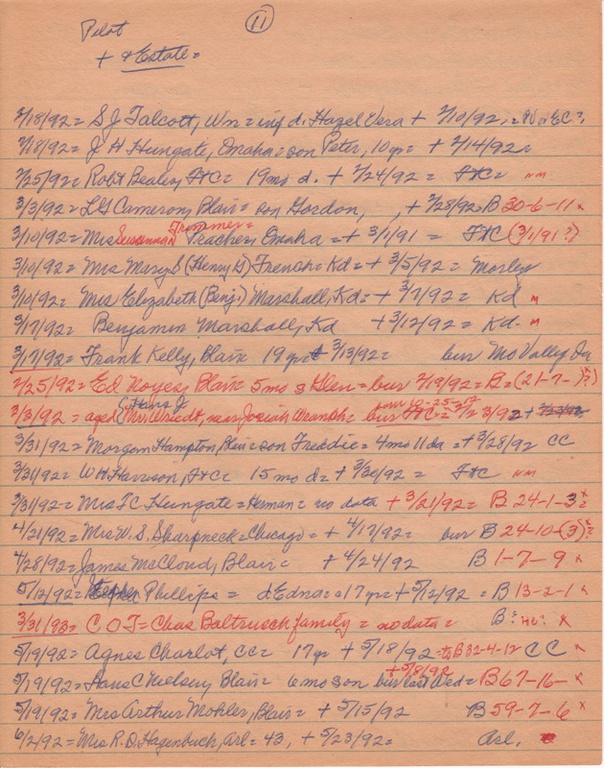 11
Pilot
+ & Estate =
2/18/92 = S J Talcott, Wn = inf d. Hazel Vera + 2/10/92. =
2/18/92 = J H Hungate, Omaha = son Peter, 10 yr = + 2/14/92 =
2/25/92 = Robt Beales, FtC = 19 mo d. + 2/24/92 = FtC = NM
3/3/92 = L G Cameron, Blair = son Gordon, , + 2/28/92 B 30-6-11 x
Trimmer =
3/10/92 = Mrs Susannah Peacher, Omaha = + 3/1/91 = FtC (3/1/91?)
3/10/92 = Mrs Mary S (Henry G) French = Kd = + 3/5/92 = Morley
3/10/92 = Mrs Elizabeth (Benj.) Marshall, Kd = + 3/7/92 = Kd M
3/17/92 = Benjamin Marshall, Kd + 3/12/92 = Kd. M
3/17/92 = Frank Kelly, Blair 19 yr + 3/13/92 = bur Mo Valley, Ia
2/25/92 = Ed Noyes, Blair = 5 mo s Glen = bur 2/19/92 = B = (21-7- )? x
Hans J
3/3/92 = aged Mr. Wriedt, near Josiah = bur FtC = 3/92 +
3/31/92 = Morgan Hampton, Blair = son Freddie = 4 mo 11 da = + 3/28/92 CC
3/31/92 = W H Harrison, FtC = 15 mo d = + 3/30/92 = FtC NM
3/31/92 = Mrs T C Hungate = Herman = no data + 3/21/92 = B 24-1-3 x
4/21/92 = Mrs W. S. Sharpneck = Chicago = + 4/17/92 = bur B 24-10-(3) x
4/28/92 = James McCloud, Blair = + 4/24/92 B 1-7-9 x
5/12/92 = Phillips = d Edna = 17 yr = + 5/12/92 = B 13-2-1 x
3/31/93 = C O T = Chas Baltrusch family = no data = B = no = x
5/19/92 = Agnes Charlot, CC = 17 yr + 5/18/92 = B 32-4-12 CC x
+ 5/8/92
5/19/92 = Hans C Nielsen, Blair = 6 mo son bur last Wed = B 67-16- x
5/19/92 = Mrs Arthur Mohler, Blair = + 5/15/92 B 59-7-6 x
6/2/92 = Mrs R. D. Hagenbuch, Arl = 43, + 5/23/92 = Arl.